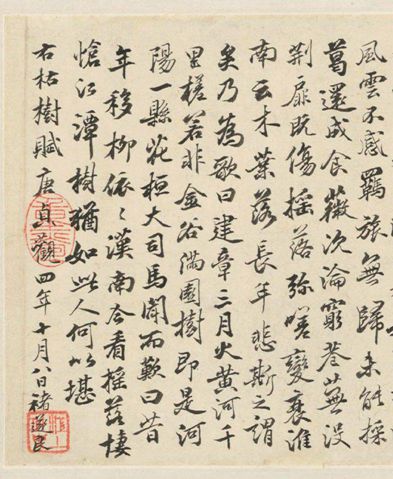 風雲不感羈旅無歸未能採
葛還成食薇沉淪窮巷蕪没
荆扉既傷搖落弥嗟變衰淮
南云木葉落長年悲斯之謂
矣乃為歌曰建章三月火黄河千
里槎若非金谷滿園樹即是河
陽一縣花桓大司馬聞而歎曰昔
年移柳依〻漢南今看搖落悽
愴江潭樹猶如此人何以堪
右枯樹賦唐貞觀四年十月八日褚遂良